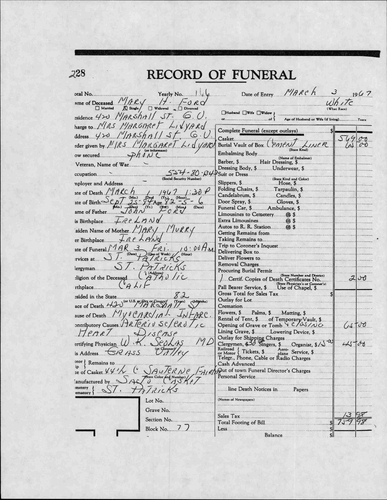 228
RECORD OF FUNERAL
otal No. Yearly No. 166 Date of Entry MARCH 3 1967
me of Deceased MARY H. FORD WHITE
Married Single Widowed Divorced Husband Wife Widow (What Race)
sidence 420 MARSHALL ST. G.V. or of Age of Husband or Wife (if living) Years
harge to MRS MARGARET LIDYARD
ddress 420 MARSHALL ST. G.V.
rder given by MRS MARGARET LIDYARD
ow secured PHONE
Veteran, Name of War
ccupation
(Social Security Number)
mployer and Address
ate of Death MARCH 1 1967 1:30P
ate of Birth SEPT 25-84
ame of Father JOHN FORD
s Birthplace IRELAND
aiden Name of Mother MARY MURRY
er Birthplace IRELAND
ate of Funeral MAR 3 FRI. 10:00 A.M.
rvices at ST. PATRICKS
lergyman ST. PATRICKS
ligion of the Deceased CATHOLIC
irthplace CALIF
esided in the State 82
ace of Death 420 MARSHALL ST
ause of Death MYOCARDIAL INFARC
ontributory Causes ARTERIOSCLEROTIC
HEART DISEASE
ertifying Physician M D
is Address GRASS VALLEY
Remains to
ze of Casket
anufactured by CASKET
emetery ST. PATRICKS
Lot No.
Grave No.
Section No.
Block No. 77
Complete Funeral (except outlays) $
Casket 569.00
Burial Vault of Box CEMENT LINER 65.00
(State Kind)
Embalming Body
(Name of Embalmer)
Barber, $ Hair Dressing, $
Dressing Body, $ Underwear, $
Suit or Dress
(State Kind and Color)
Slippers, $ Hose, $
Folding Chairs, $ Tarpaulin, $
Candelabrum, $ Candles, $
Door Spray, $ Gloves, $
Funeral Car, $ Ambulance, $
Limousines to Cemetery @ $
Extra Limousines @ $
Autos to R. R. Station @ $
Getting Remains from
Taking Remains to
Trip to Coroner's Inquest
Delivering Box to
Deliver Flowers to
Removal Charges
Procuring Burial Permit
(State Number and District)
1 Cert. Copies of Death Certificates No. 2.00
(State Physician's or Coroner's)
Pall Bearer Service, $ Use of Chapel, $
Gross Total for Sales Tax
Outlay for Lot
Cremation
Flowers, $ Palms, $ Matting, $
Rental of Tent, $ of Temporary Vault, $
Opening of Grave or Tomb & CLOSING 65.00
Lining Grave, $ Lowering Device, $
Outlay for Shipping Charges
Clergymen, $30 Singers, $ Organist, $15 45.00
Railroad or Motor Tickets, $ Auto Service, $
Telep., Phone, Cable or Radio Charges
Cash Advanced
Out of town Funeral Director's Charges
Personal Service
line Death Notices in Papers
(Names of Newspapers)
Sales Tax 13.98
Total Footing of Bill $ 759.98
Less
Balance $